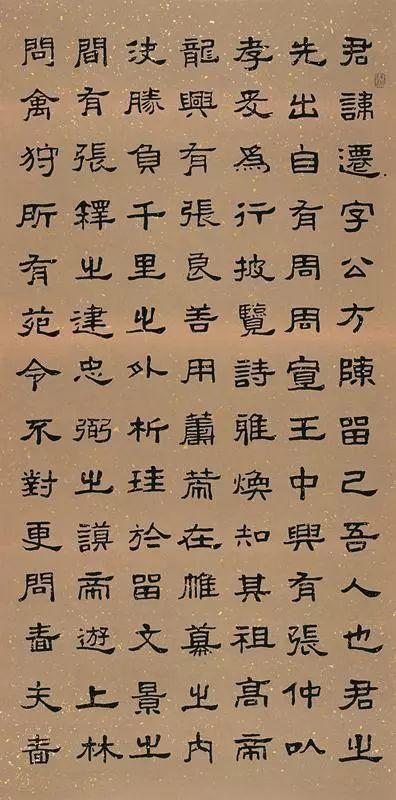 君諱遷字公方陳留己吾人也君之
先出自有周周宣王中興有張仲以
孝友為行披覽詩雅煥知其祖高帝
龍興有張良善用籌策在帷幕之内
決勝負千里之外析珪於留文景之
間有張釋之建忠弼之謨帝遊上林
問禽狩所有苑令不對更問嗇夫嗇